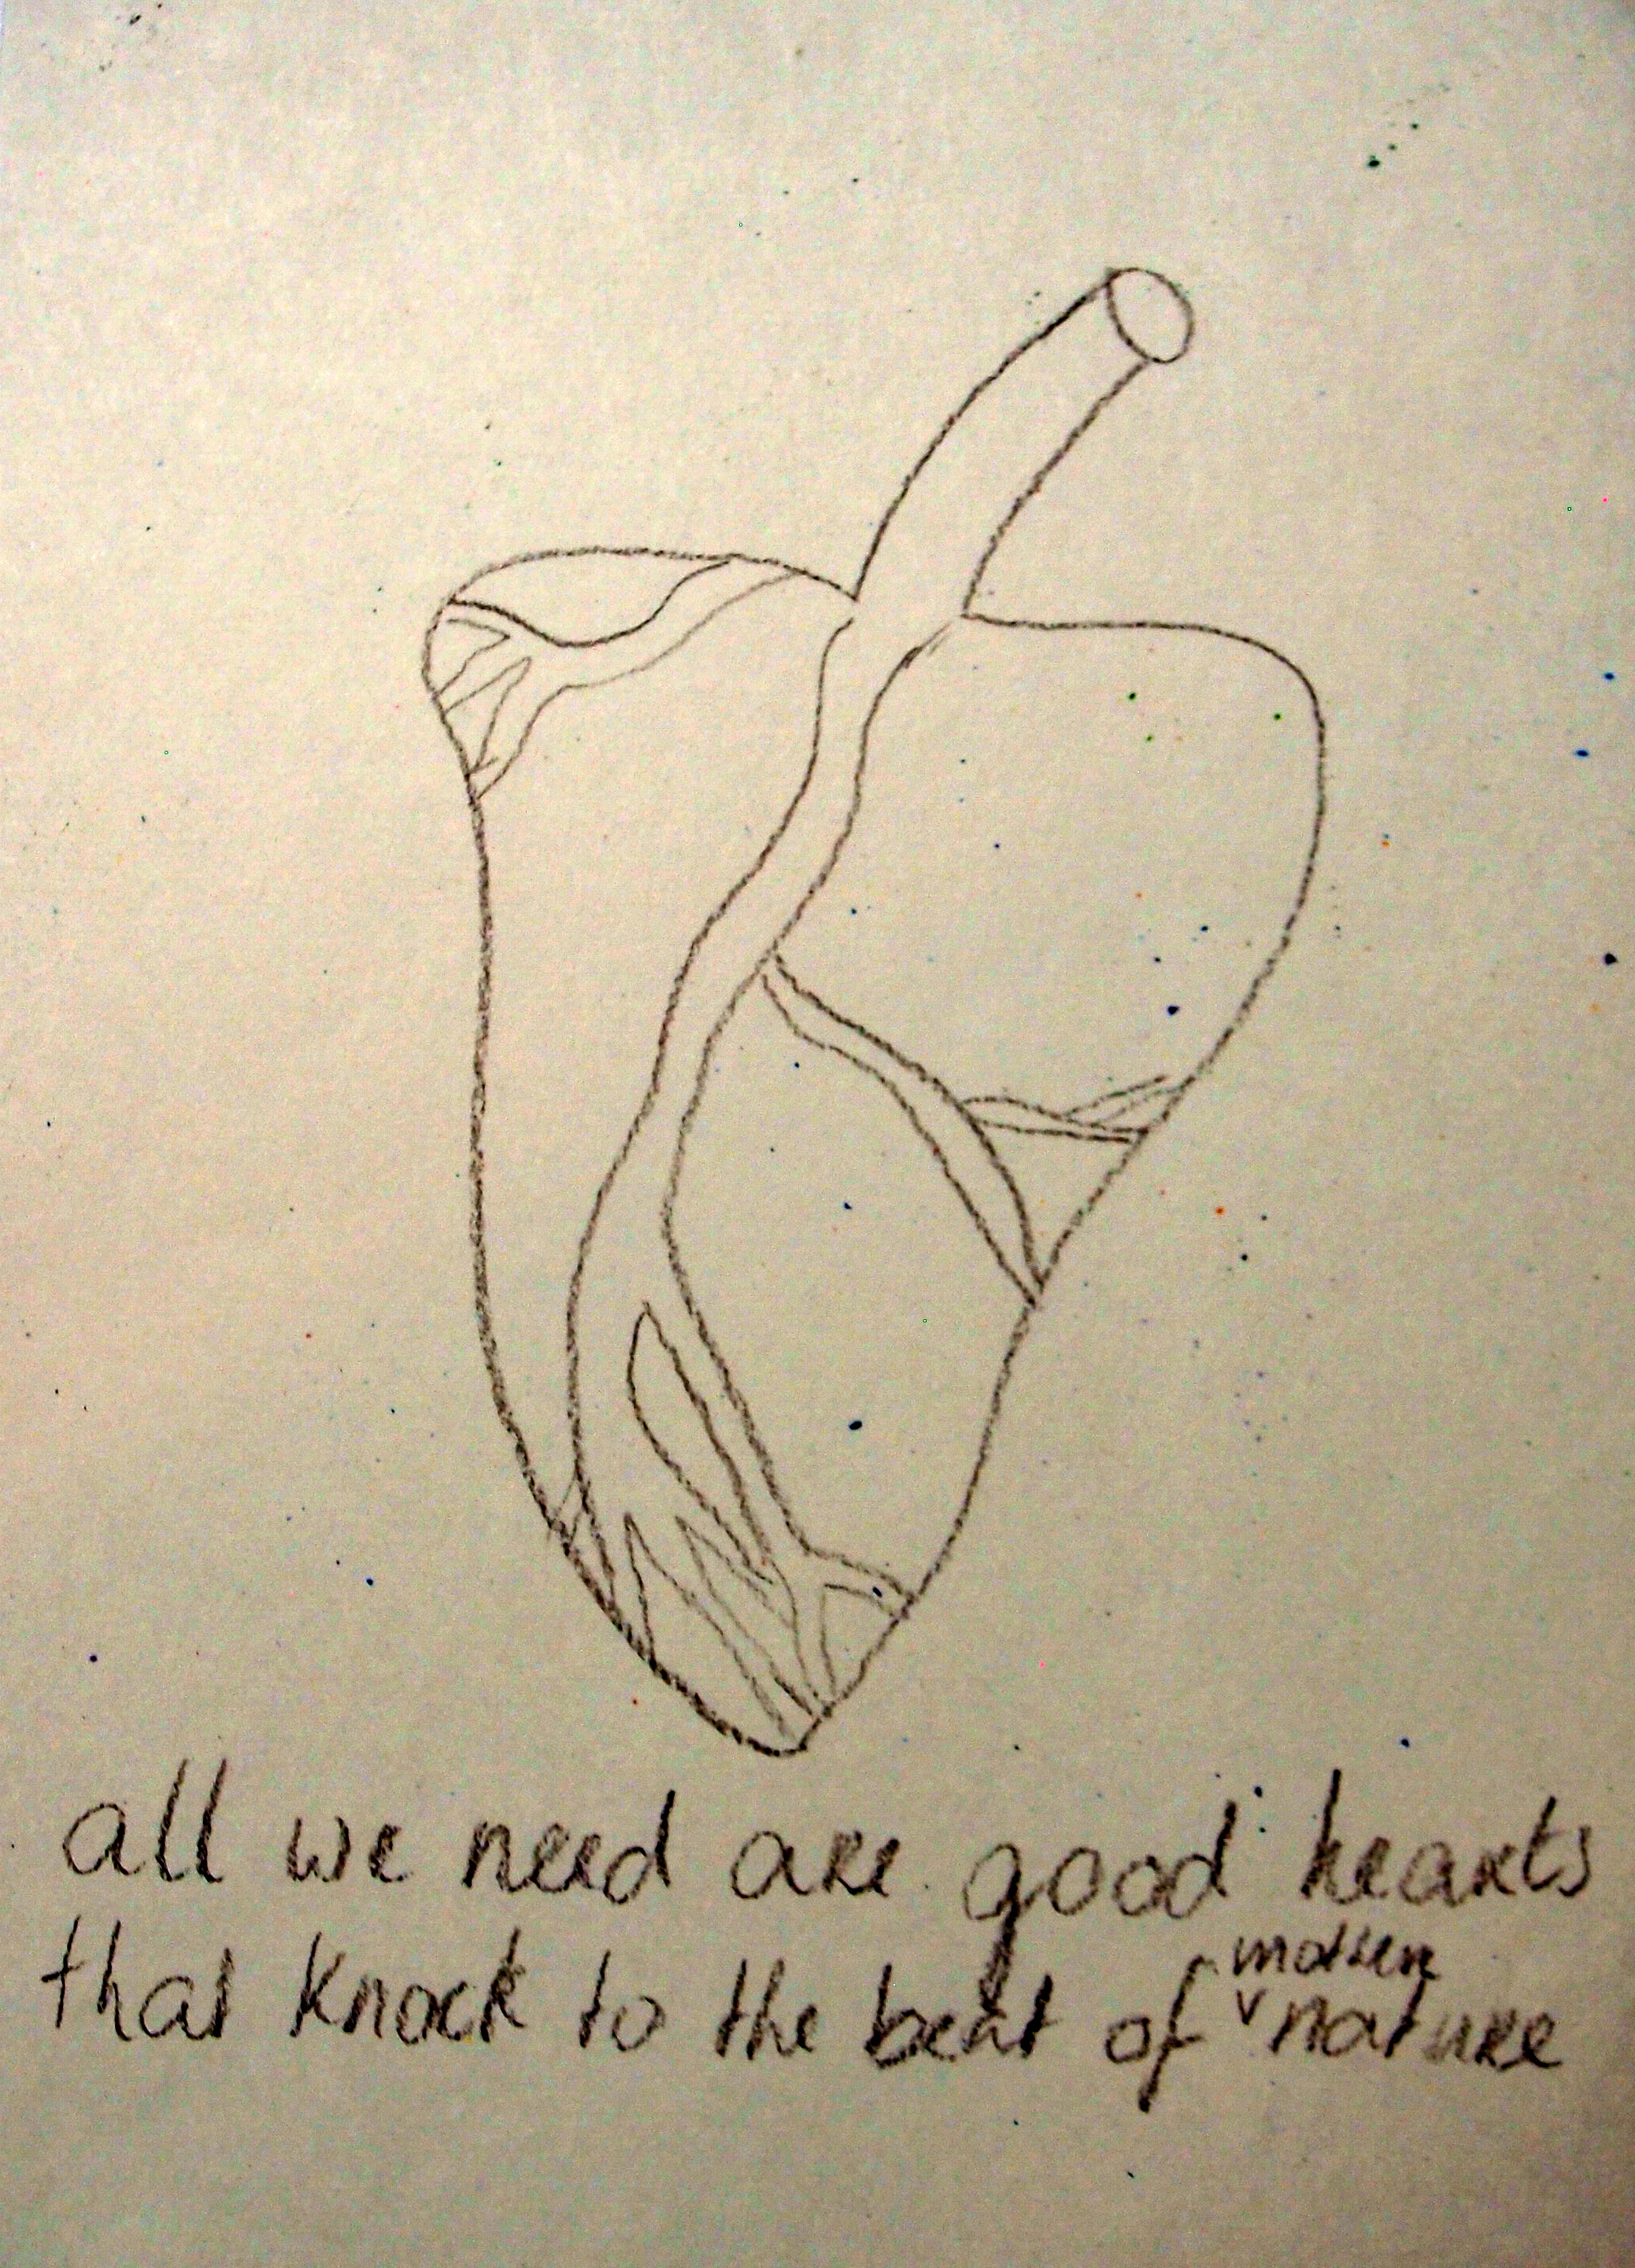 all we need are good hearts
that knock to the beat of mother nature